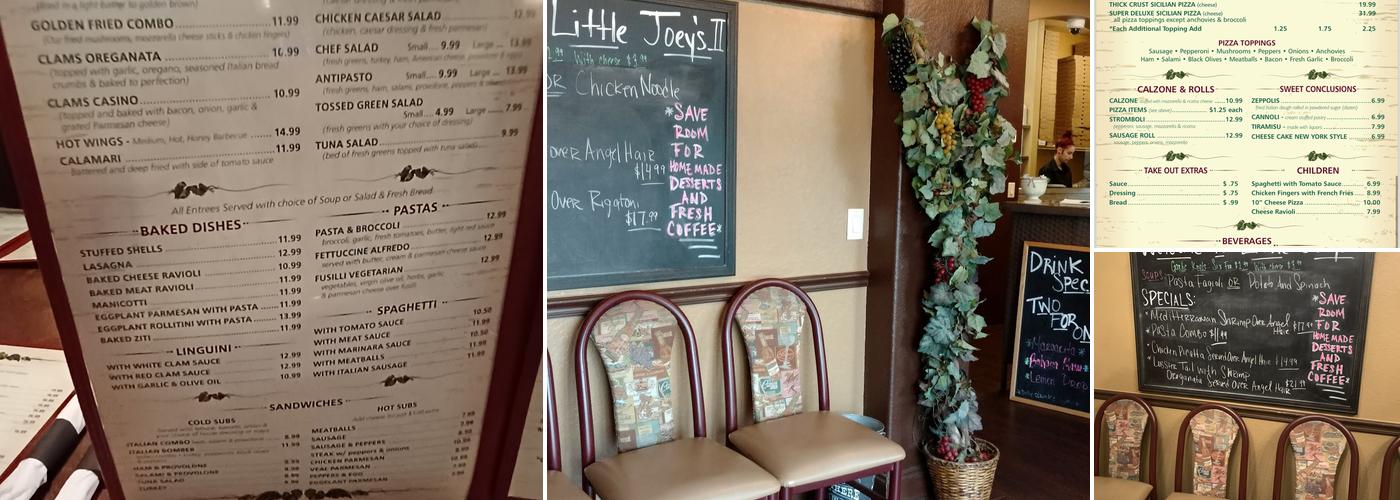 GOLDEN FRIED COMBO 11.99
(Our fried mushrooms, mozzarella cheese sticks & chicken fingers)
CLAMS OREGANATA 10.99
(topped with garlic, oregano, seasoned Italian bread
crumbs & baked to perfection)
CLAMS CASINO 10.99
(topped and baked with bacon, onion, garlic &
grated Parmesan cheese)
HOT WINGS - Medium, Hot, Honey Barbecue 14.99
CALAMARI 11.99
Battered and deep fried with side of tomato sauce
CHICKEN CAESAR SALAD 12.99
(chicken, caesar dressing & fresh parmesan)
CHEF SALAD Small.... 9.99 Large ... 13.99
(fresh greens, turkey, ham, American cheese,
ANTIPASTO Small.... 9.99 Large ... 13.99
(fresh greens, ham, salami, provolone, peppers &
TOSSED GREEN SALAD
Small.... 4.99 Large ..... 7.99
(fresh greens with your choice of dressing)
TUNA SALAD 9.99
(bed of fresh greens topped with tuna salad)
All Entrees Served with choice of Soup or Salad & Fresh Bread.
BAKED DISHES
STUFFED SHELLS 11.99
LASAGNA 11.99
BAKED CHEESE RAVIOLI 10.99
BAKED MEAT RAVIOLI 11.99
MANICOTTI 11.99
EGGPLANT PARMESAN WITH PASTA 13.99
EGGPLANT ROLLITINI WITH PASTA 13.99
BAKED ZITI 11.99
LINGUINI
WITH WHITE CLAM SAUCE 12.99
WITH RED CLAM SAUCE 12.99
WITH GARLIC & OLIVE OIL 10.99
PASTAS
PASTA & BROCCOLI 12.99
broccoli, garlic, fresh tomatoes, butter, light red sauce
FETTUCCINE ALFREDO 12.99
served with butter, cream & parmesan cheese sauce
FUSILLI VEGETARIAN 12.99
vegetables, virgin olive oil, herbs, garlic
& parmesan cheese over fusilli
SPAGHETTI
WITH TOMATO SAUCE 10.50
WITH MEAT SAUCE 11.99
WITH MARINARA SAUCE 10.50
WITH MEATBALLS 11.99
WITH ITALIAN SAUSAGE 11.99
SANDWICHES
COLD SUBS
ITALIAN COMBO 8.99
ITALIAN BOMBER 11.99
HAM & PROVOLONE
SALAMI & PROVOLONE
TUNA SALAD
TURKEY
HOT SUBS
MEATBALLS 7.99
SAUSAGE
SAUSAGE & PEPPERS
STEAK w/ peppers & onions
CHICKEN PARMESAN
VEAL PARMESAN
PEPPERS & EGG
EGGPLANT PARMESAN
Little Joey's II
With cheese $3.99
OR Chicken Noodle
over Angel Hair
$14.99
Over Rigatoni
$17.99
*SAVE
ROOM
FOR
HOME MADE
DESSERTS
AND
FRESH
COFFEE*
DRINK
SPEC
TWO
FOR
ON
THICK CRUST SICILIAN PIZZA (cheese) 19.99
SUPER DELUXE SICILIAN PIZZA (cheese) 31.99
all pizza toppings except anchovies & broccoli
*Each Additional Topping Add 1.25 1.75 2.25
PIZZA TOPPINGS
Sausage • Pepperoni • Mushrooms • Peppers • Onions • Anchovies
Ham • Salami • Black Olives • Meatballs • Bacon • Fresh Garlic • Broccoli
CALZONE & ROLLS
CALZONE stuffed with mozzarella & ricotta cheese 10.99
PIZZA ITEMS (see above) $1.25 each
STROMBOLI 12.99
pepperoni, sausage, mozzarella & ricotta
SAUSAGE ROLL 12.99
sausage, peppers, onions, mozzarella
SWEET CONCLUSIONS
ZEPPOLIS 6.99
fried Italian dough rolled in powdered sugar (dozen)
CANNOLI • cream stuffed pastry 6.99
TIRAMISU • made with liquors 7.99
CHEESE CAKE NEW YORK STYLE 6.99
TAKE OUT EXTRAS
Sauce $ .75
Dressing $ .75
Bread $ .99
CHILDREN
Spaghetti with Tomato Sauce 6.99
Chicken Fingers with French Fries 8.99
10" Cheese Pizza 10.00
Cheese Ravioli 7.99
BEVERAGES
Garlic Knots Six For $2.99 With cheese $3.99
SOUPS: Pasta Fagioli OR Potato And Spinach
SPECIALS:
*Mediterranean Shrimp Over Angel
Hair $17.99
*Pasta Combo $11.99
*Chicken Picatta Served Over Angel Hair $14.99
*Lobster Tail with Shrimp
Oreganata Served Over Angel Hair $21.99
*SAVE
ROOM
FOR
HOME MADE
DESSERTS
AND
FRESH
COFFEE*